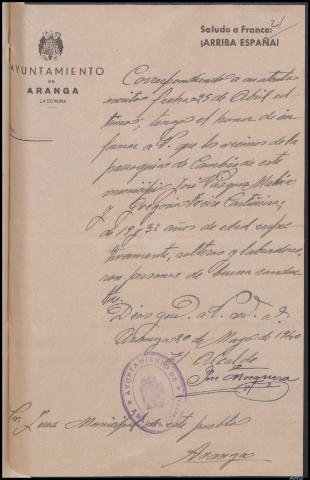 21
Saludo a Franco:
¡ARRIBA ESPAÑA!
AYUNTAMIENTO
DE
ARANGA
LA CORUÑA
Correspondiendo a su atento
escrito fecha 25 de Abril úl-
timo; tengo el honor de in-
formar a V. que los vecinos de la
parroquia de Cambás de este
municipio José Vázquez
y
de 19 y 32 años de edad respec-
tivamente, solteros y labradores,
son personas de buena conduc-
ta.
Dios gue. a V. m. a.
Aranga 20 de Mayo de 1940
El Alcalde
José
AYUNTAMIENTO DE ARANGA
Sr. Juez Municipal de este pueblo
Aranga